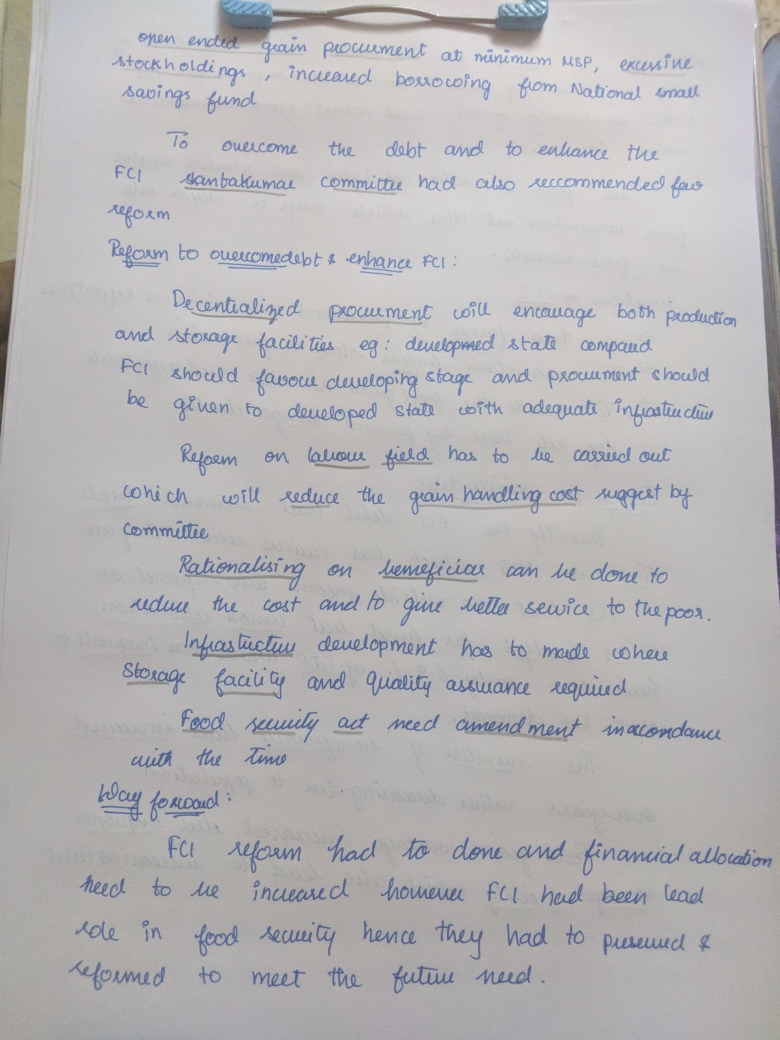 open ended grain procument at minimum MSP, excessive
stockholdings, increared borrowing from National small
savings fund
To overcome the debt and to enhance the
FCI shantakumar committee had also reccommended few
reform
Reform to overcomedebt & enhance FCI :
Decentialized procument will encauage both production
and storage facilities eg: developmed state compaued
FCI should favour developing stage and procument should
be given to developed state with adequate infrastructur
Reform on labour field has to be carried out
which will reduce the grain handling cost suggest by
committee
Rationalising on beneficiar can be done to
reduce the cost and to give better service to the poor.
Infrastuctur development has to made where
storage facility and quality assurance required
Food security act need amendment inaccordance
with the time
Way forward :
FCI reform had to done and financial allocation
need to be increased however FCI had been lead
role in food security hence they had to preserved &
reformed to meet the future need.